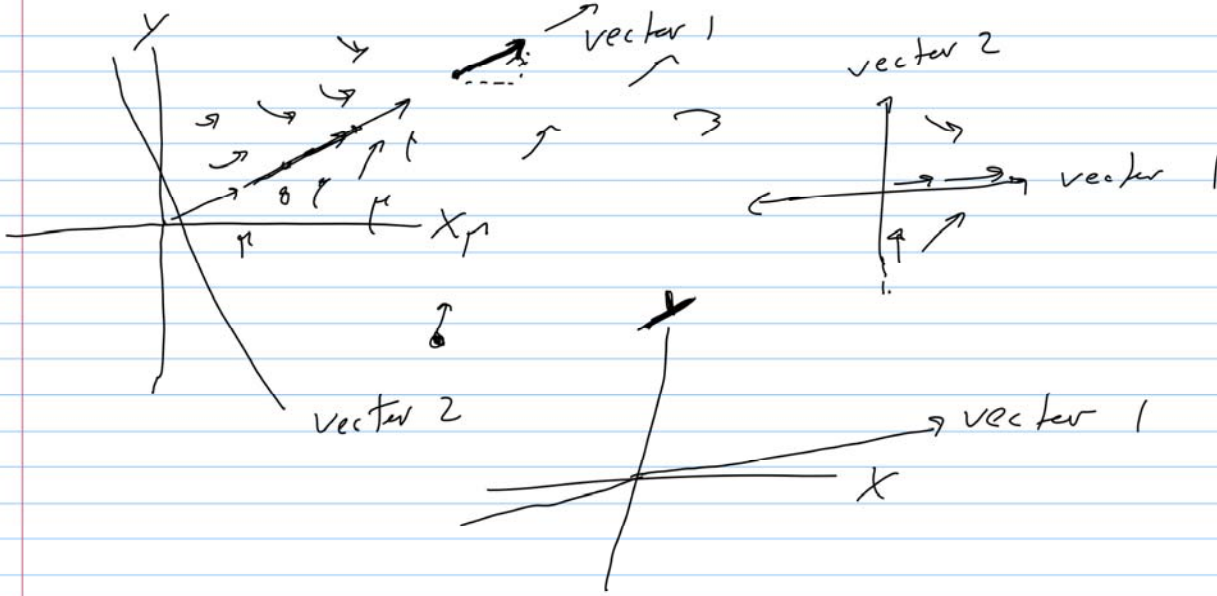 Y
vector 1
vector 2
vector 1
X
vector 2
vector 1
X